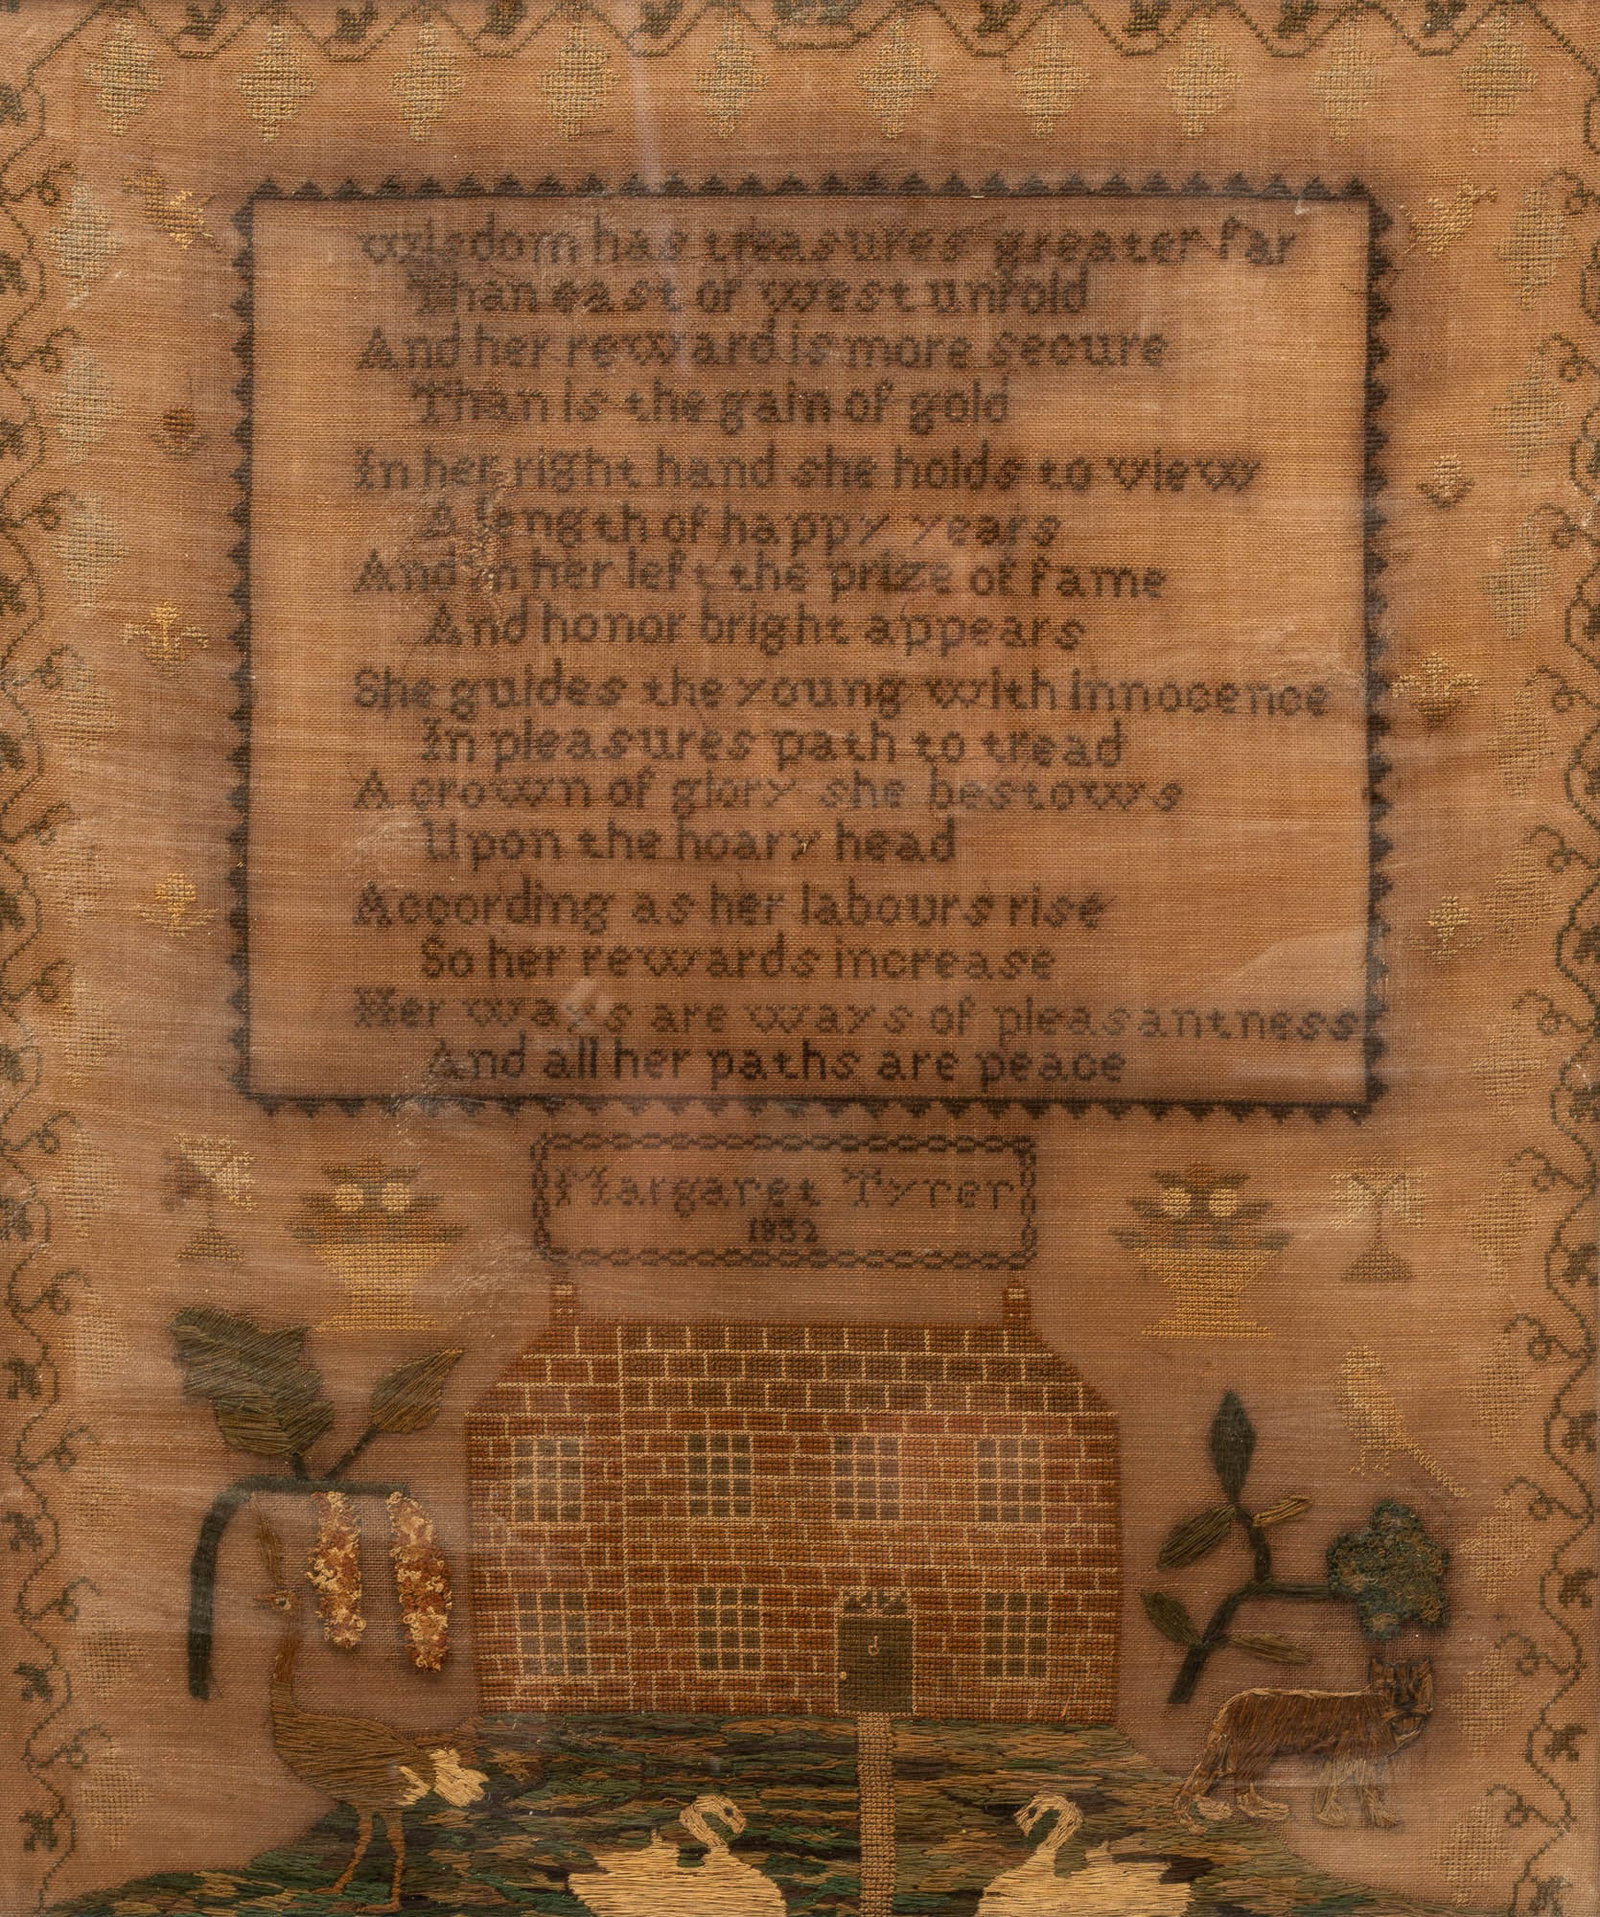 Wisdom has treasures greater far
Than east or west unfold
And her reward is more secure
Than is the gain of gold
In her right hand she holds to view
A length of happy years
And in her left the prize of fame
And honor bright appears
She guides the young with innocence
In pleasures path to tread
A crown of glory she bestows
Upon the hoary head
According as her labours rise
So her rewards increase
Her ways are ways of pleasantness
And all her paths are peace
Margaret Tyrer
1832